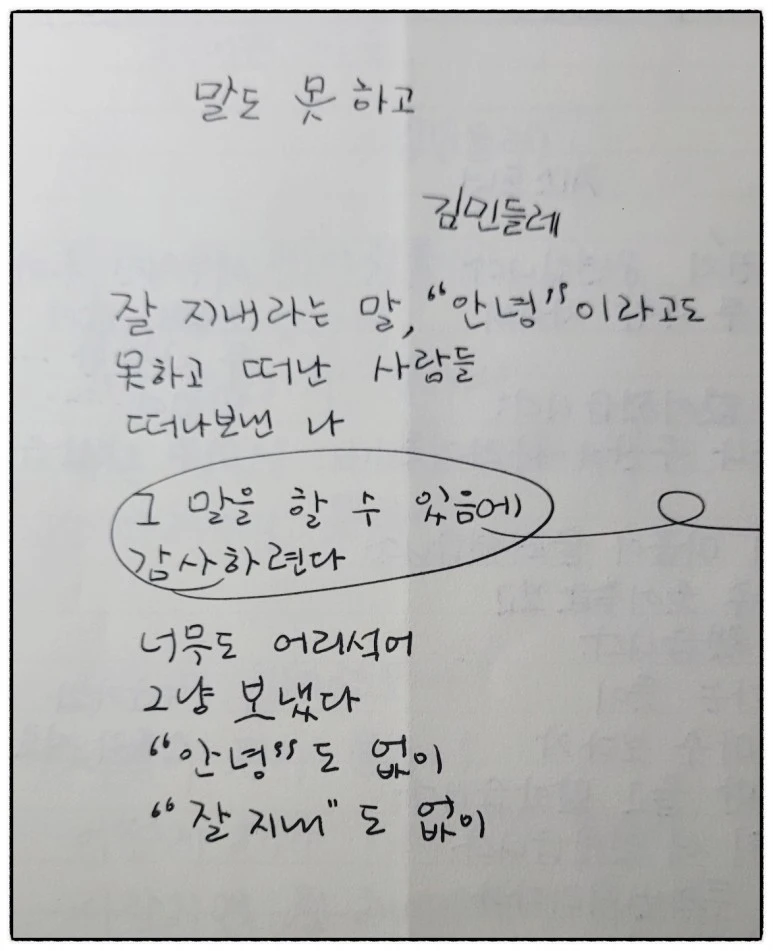 말도 못 하고
김민들레
잘 지내라는 말, “안녕”이라고도
못하고 떠난 사람들
떠나보낸 나
그 말을 할 수 있음에
감사하련다
너무도 어리석어
그냥 보냈다
“안녕”도 없이
“잘 지내”도 없이